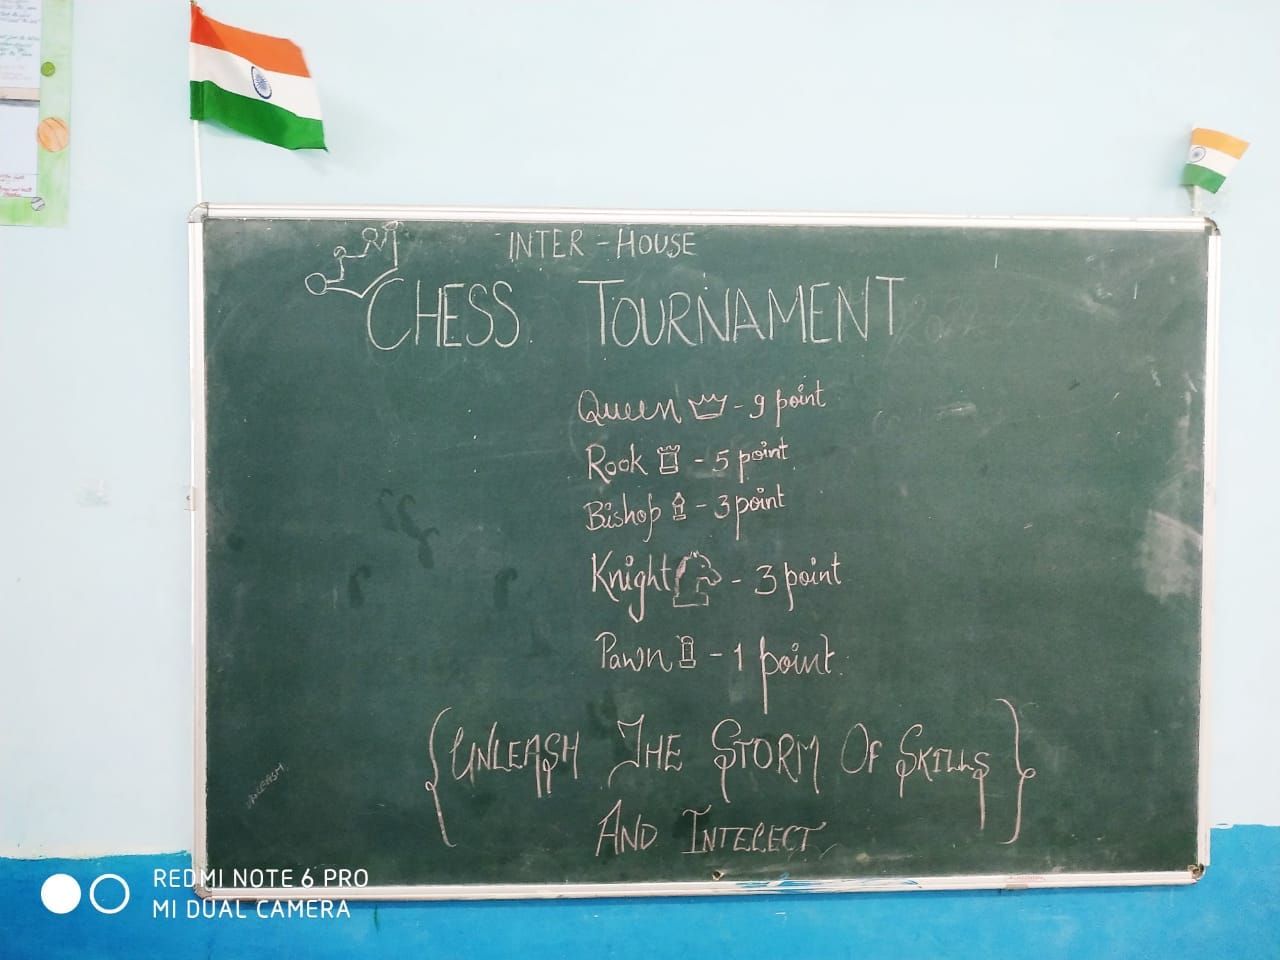 INTER - HOUSE
CHESS TOURNAMENT
Queen - 9 point
Rook - 5 point
Bishop - 3 point
Knight - 3 point
Pawn - 1 point.
{UNLEASH THE STORM OF SKILLS}
AND INTELECT
UNLEASH
REDMI NOTE 6 PRO
MI DUAL CAMERA